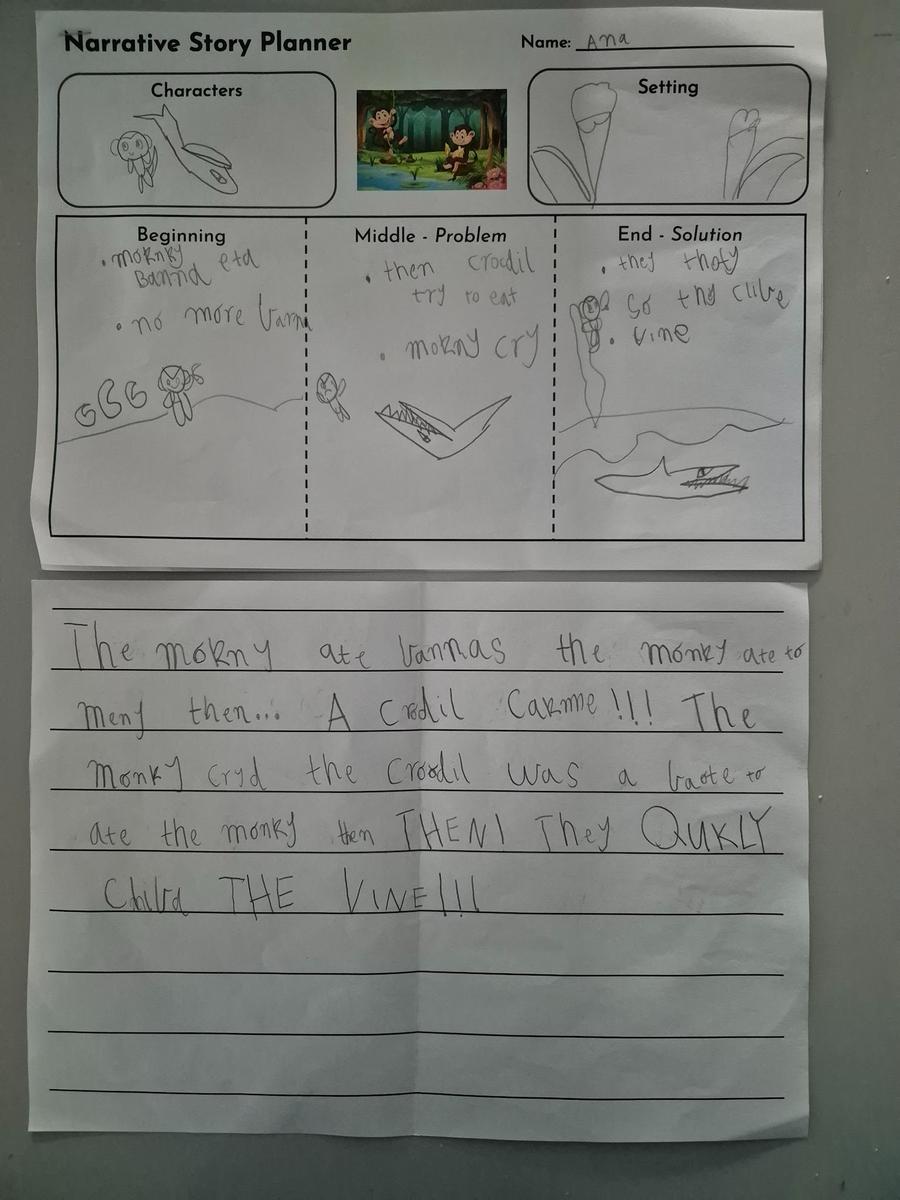 Narrative Story Planner
Name: Ana
Characters
Setting
Beginning
• mornky eta
Banna
• no more banna
Middle - Problem
• then crodil
try to eat
• morny cry
End - Solution
• they thoty
so thy clibe
• vine
The morny ate bannas the monky ate to
meny then... A crodil Carme!!! The
monky cryd the croodil was a baote to
ate the monky then THEN! They QUKLY
THE VINE!!!